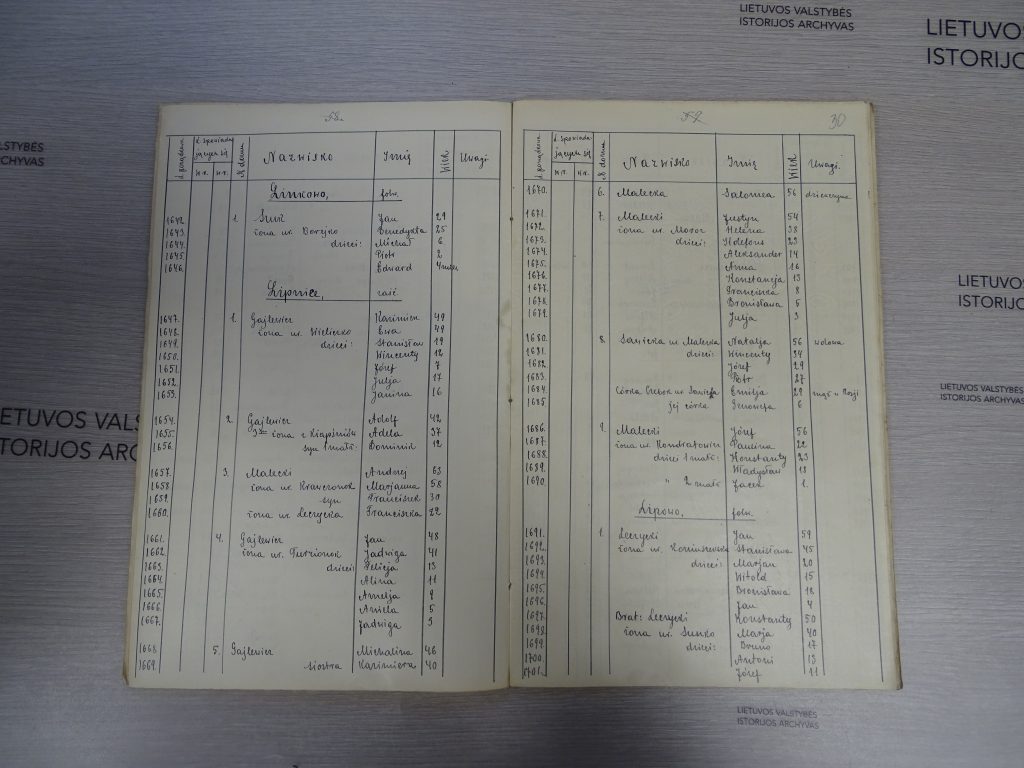 LIETUVOS VALSTYBĖS
ISTORIJOS ARCHYVAS
LIETUVOS
ISTORIJO
ALSTYBĖS
ARCHYVAS
LIETUVOS
ISTORIJOS
LIETUVOS VALSTYBĖS
ISTORIJOS ARCHYVAS
IETUVOS VALS
STORIJOS ARC
LIETUVOS VALSTYBĖS
ISTORIJOS ARCHYVAS
58.
L. porządkowa
L. spowiada-
jących się
N. r.
N. r.
N domu
Nazwisko
Imię
Wiek
Uwagi
Linkowo, folw.
1642. 1. Jan 29
1643. żona ur. Borejko Benedykta 25
1644. dzieci: Michał 6
1645. Piotr 2
1646. Edward 4 mies.
Lipnice, zaść
1647. 1. Gajlewicz Kazimierz 49
1648. żona ur. Wieliczko Ewa 49
1649. dzieci: Stanisław 19
1650. Wincenty 12
1651. Józef 7
1652. Julja 17
1653. Janina 16
1654. 2. Gajlewicz Adolf 42
1655. żona z Adela 37
1656. syn 1 małż: Dominik 12
1657. 3. Malecki Andrzej 63
1658 żona ur. Krawczonok Marjanna 58
1659. syn Franciszek 30
1660. żona ur. Leczycka Franciszka 22
1661. 4. Gajlewicz Jan 48
1662. żona ur. Jadwiga 41
1663. dzieci: Felicja 13
1664. Alina 11
1665. Amelja 9
1666. Aniela 5
1667. Jadwiga 3
1668 5. Gajlewicz Michalina 46
1669. siostra Kazimiera 40
59
30
L. porządkowa
L. spowiada-
jących się
N. r.
N. r.
N domu
Nazwisko
Imię
Wiek
Uwagi.
1670. 6. Malecka Salomea 56
1671. 7. Malecki Justyn 54
1672. żona ur. Moroz Helena 38
1673. dzieci: Ildefons 23
1674. Aleksander 14
1675. Anna 16
1676. Konstancja 13
1677. Franciszka 8
1678. Bronisława 5
1679. Julja 3
1680. 8. Sawicka ur. Malecka Natalja 56 wdowa
1681. dzieci: Wincenty 34
1682. Józef 29
1683. Piotr 27
1684. córka ur. Emilja 29 mąż w Rosji
1685 jej córka 6
1686. 9. Malecki Józef 56
1687. żona ur. Kondratowicz Paulina 22
1688. dzieci 1 małż: Konstanty 23
1689. Władysław 18
1690 " 2 małż Jacek 1.
Lipowo, folw.
1691. 1. Leczycki Jan 59
1692. żona ur. Stanisława 45
1693. dzieci: Marjan 20
1694. Witold 15
1695. Bronisława 18
1696. Jan 4
1697. Brat: Leczycki Konstanty 50
1698. żona ur. Sunko Marja 40
1699. dzieci: Bruno 17
1700. Antoni 13
1701. Józef 11
LIETUVOS VALSTYBĖS
ISTORIJOS ARCHYVAS